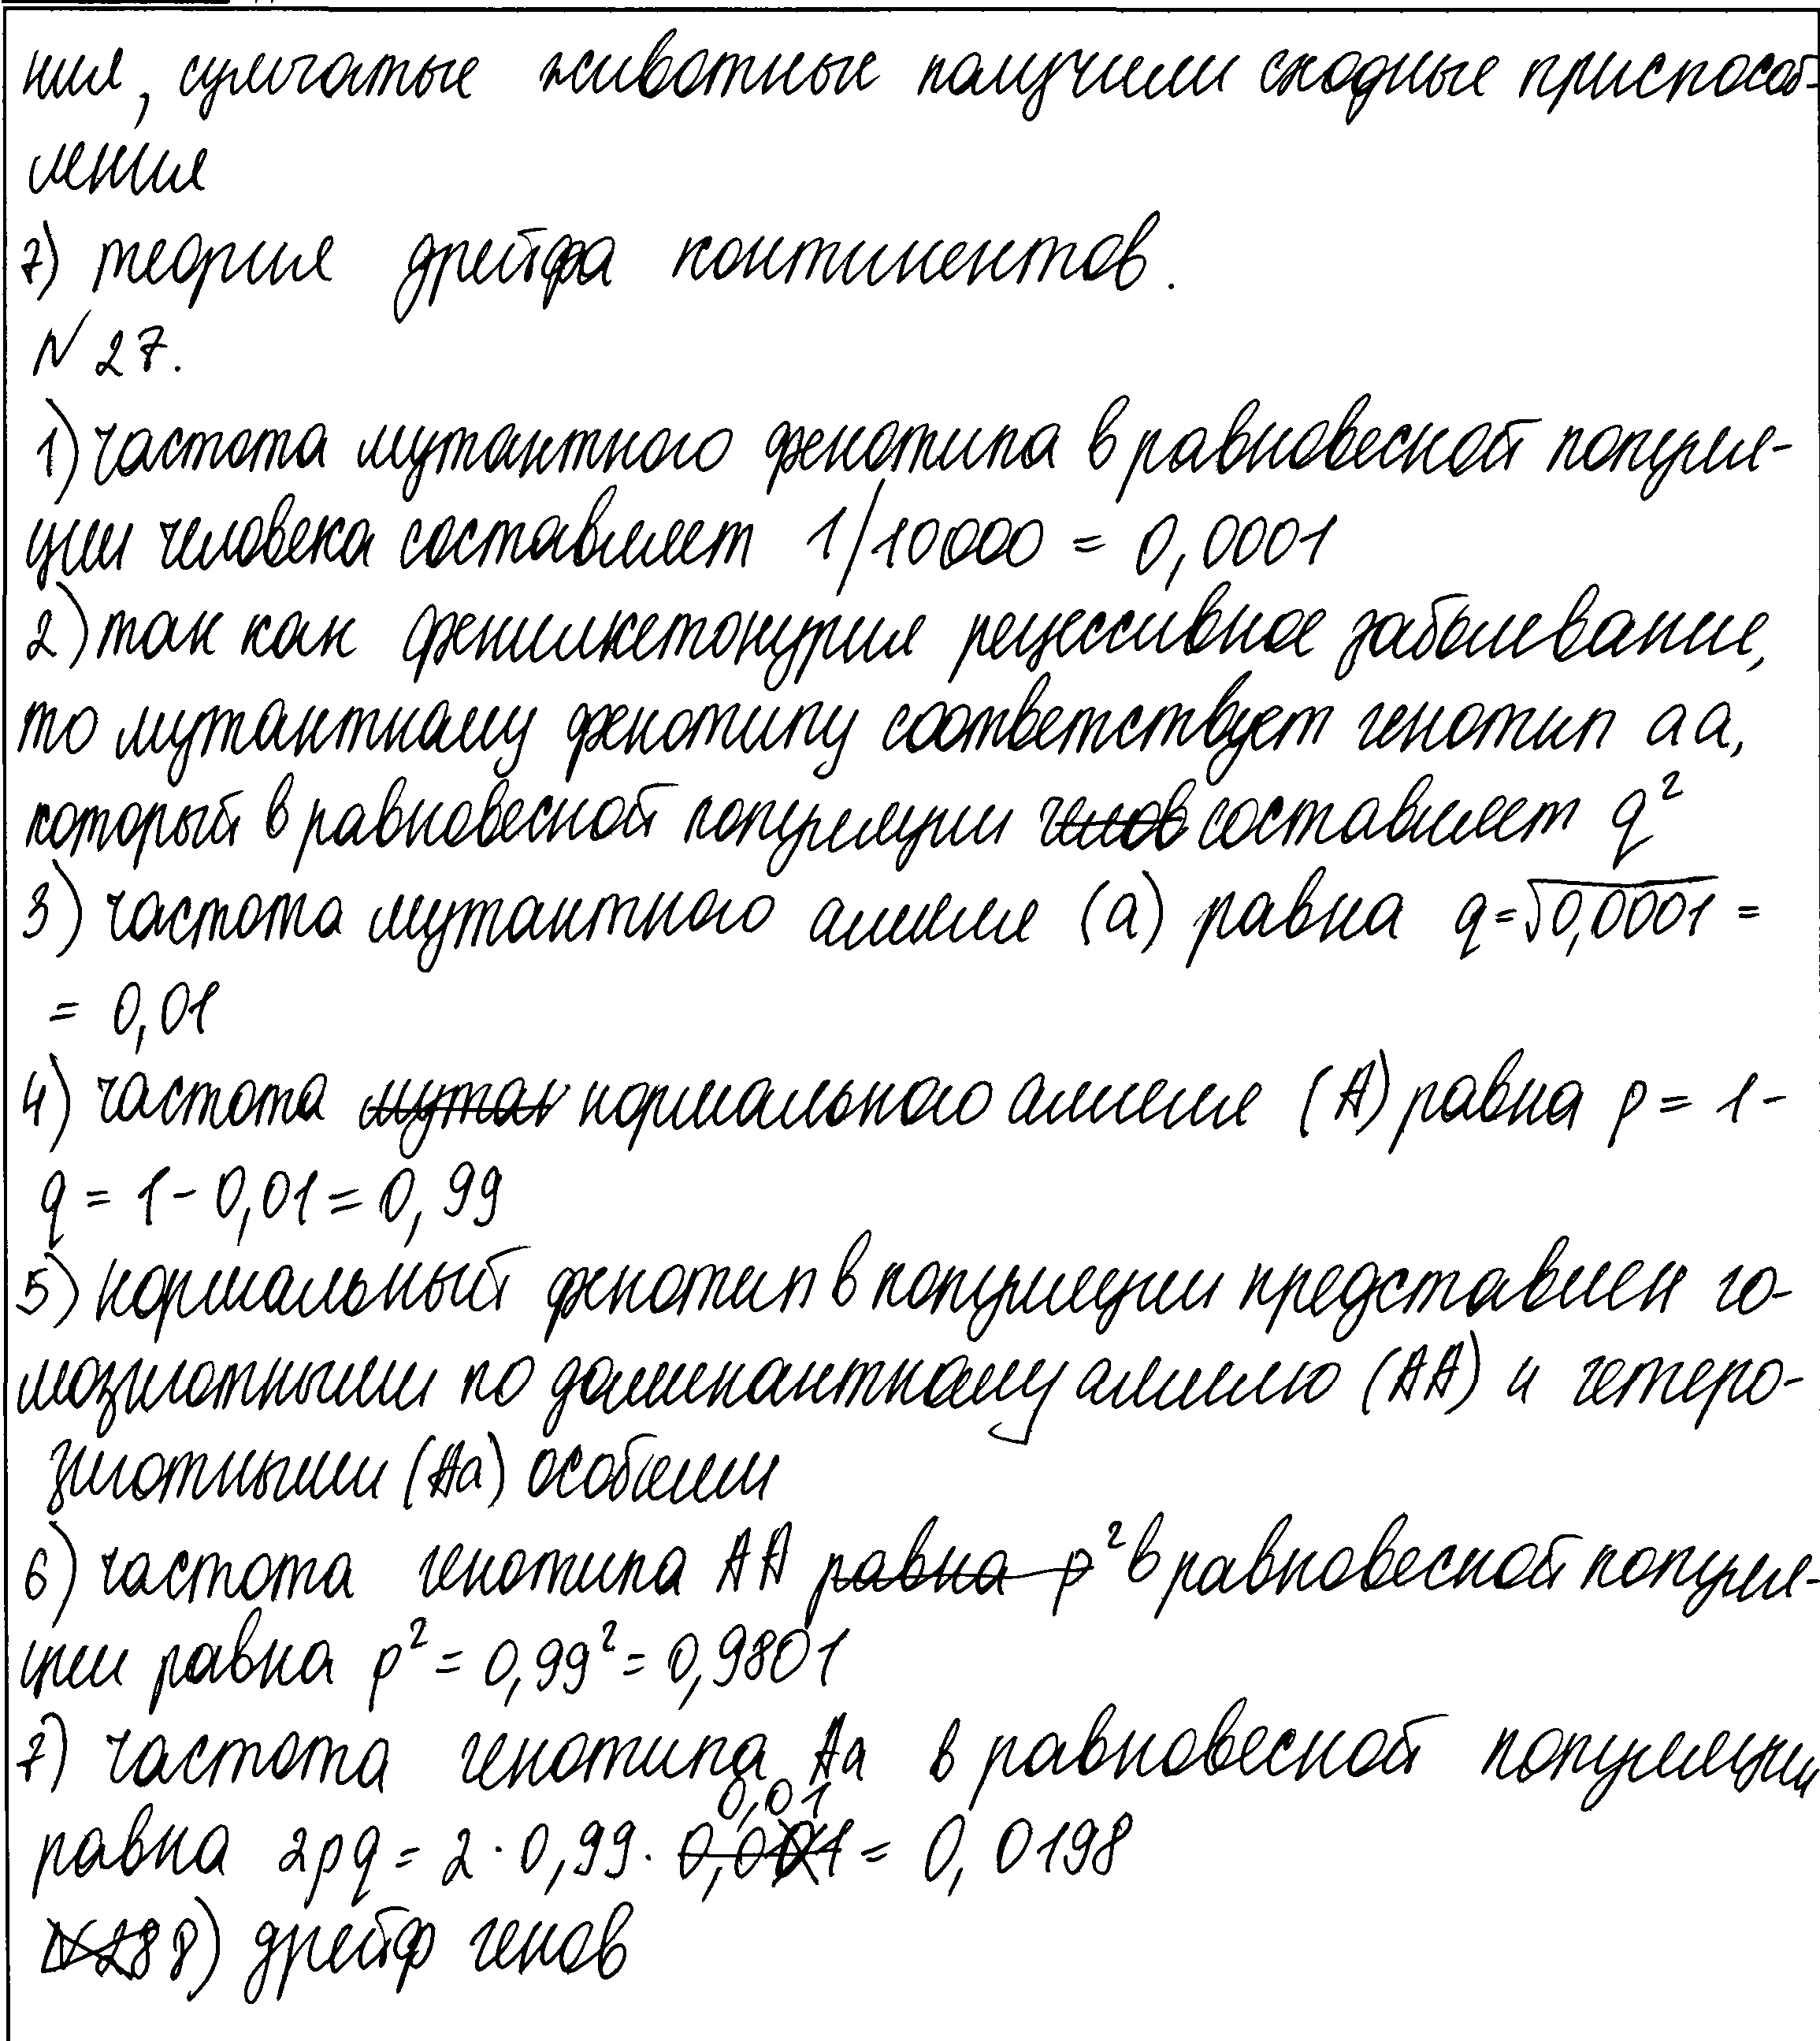 ния, сумчатые животные получили сходные приспособ-
ления
7) теория дрейфа континентов.
N 27.
1) частота мутантного фенотипа в равновесной популя-
ции человека составляет 1/10000 = 0,0001
2) так как фенилкетонурия рецессивное заболевание,
то мутантному фенотипу соответствует генотип aa,
который в равновесной популяции челов составляет q²
3) частота мутантного аллеля (a) равна q=√0,0001 =
= 0,01
4) частота мутан нормального аллеля (A) равна p = 1-
q = 1 - 0,01 = 0,99
5) нормальный фенотип в популяции представлен го-
мозиготными по доминантному аллелю (AA) и гетеро-
зиготными (Aa) особями
6) частота генотипа AA равна p² в равновесной популя-
ции равна p² = 0,99² = 0,9801
7) частота генотипа Aa в равновесной популяции
0,01
равна 2pq = 2 · 0,99 · 0,001 = 0,0198
N28 8) дрейф генов